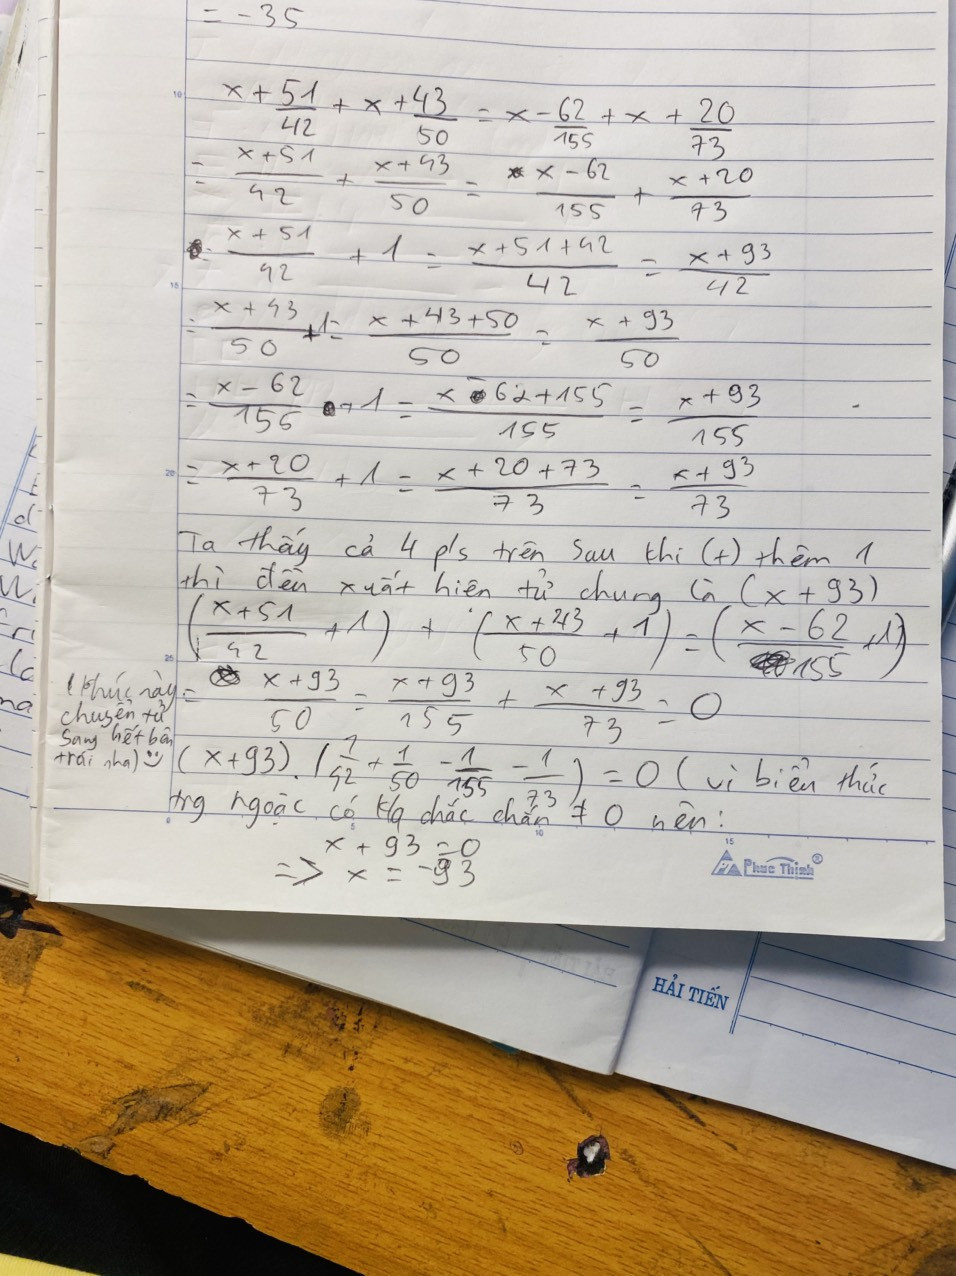 = -35
x + 51/42 + x + 43/50 = x - 62/155 + x + 20/73
= (x+51)/42 + (x+43)/50 = (x-62)/155 + (x+20)/73
(x+51)/42 + 1 = (x+51+42)/42 = (x+93)/42
= (x+43)/50 + 1 = (x+43+50)/50 = (x+93)/50
= (x-62)/155 + 1 = (x-62+155)/155 = (x+93)/155
= (x+20)/73 + 1 = (x+20+73)/73 = (x+93)/73
Ta thấy cả 4 p/s trên sau khi (+) thêm 1
thì đều xuất hiện tử chung là (x + 93)
((x+51)/42 + 1) + ((x+43)/50 + 1) = ((x-62)/155 + 1)
= (x+93)/50 = (x+93)/155 + (x+93)/73 = 0
(khúc này
chuyển từ
sang hết bên
trái nha)
(x+93).(1/42 + 1/50 - 1/155 - 1/73) = 0 (vì biểu thức
trg ngoặc có kq chắc chắn ≠ 0 nên:
x + 93 = 0
=> x = -93
Phuc Thinh®
HẢI TIẾN
10
15
20
25
0
5
10
15